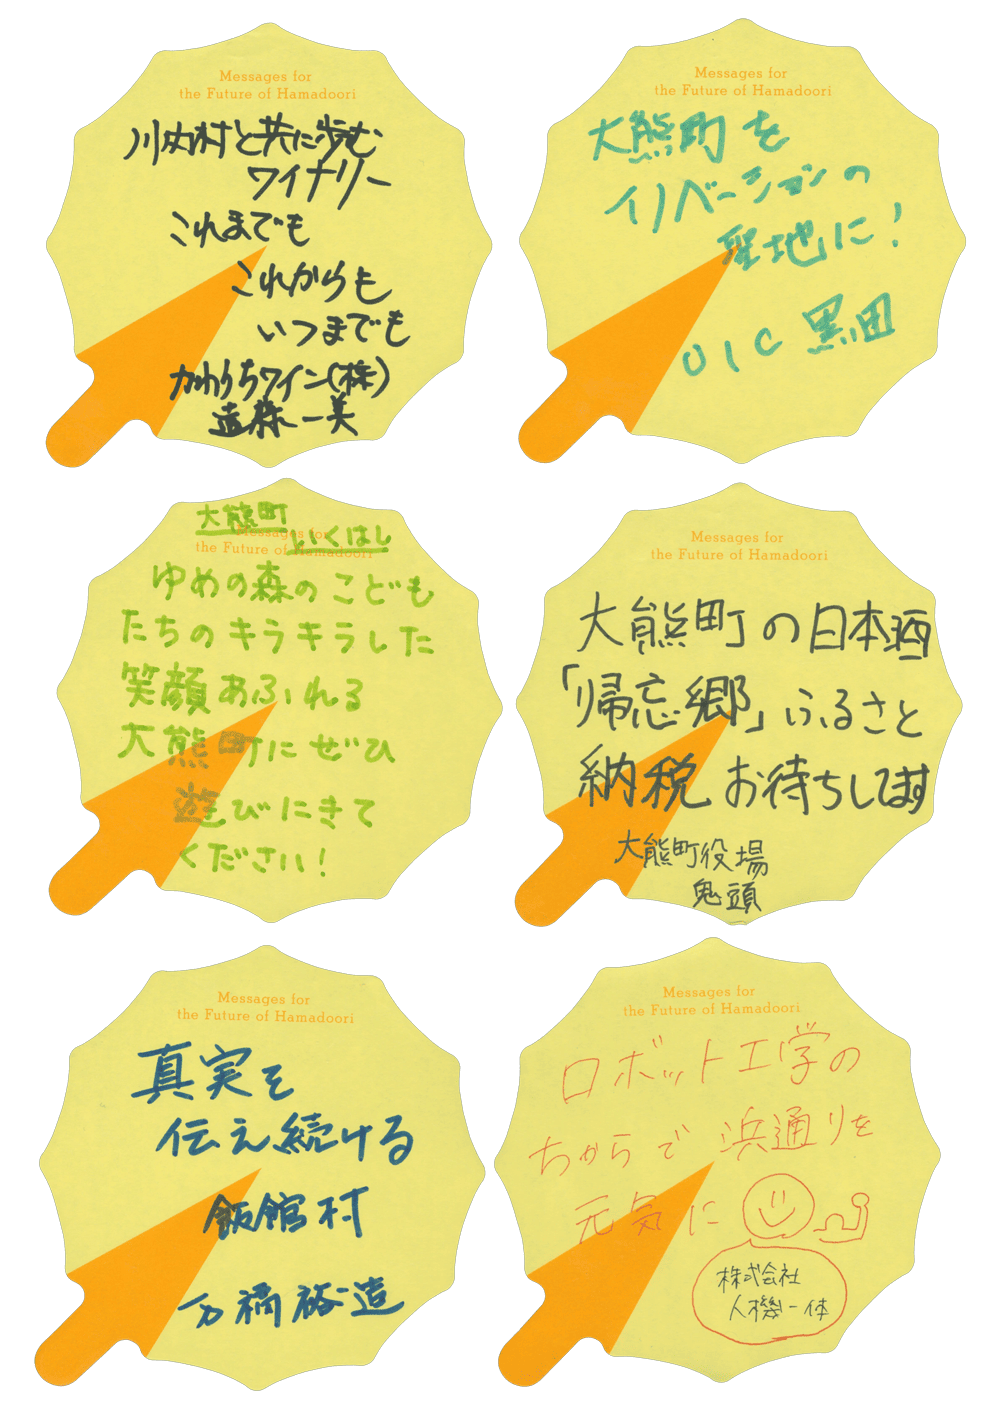 Messages for
the Future of Hamadoori
川内村と共に歩む
ワイナリー
これまでも
これからも
いつまでも
かわうちワイン(株)
遠藤一美
Messages for
the Future of Hamadoori
大熊町を
イノベーションの
聖地に!
OIC 黒田
大熊町
いくはし
Messages for
the Future of Hamadoori
ゆめの森のこども
たちのキラキラした
笑顔あふれる
大熊町にぜひ
遊びにきて
ください!
Messages for
the Future of Hamadoori
大熊町の日本酒
「帰忘郷」ふるさと
納税お待ちしてます
大熊町役場
鬼頭
Messages for
the Future of Hamadoori
真実を
伝え続ける
飯館村
Messages for
the Future of Hamadoori
ロボット工学の
ちからで浜通りを
元気に
株式会社
人機一体